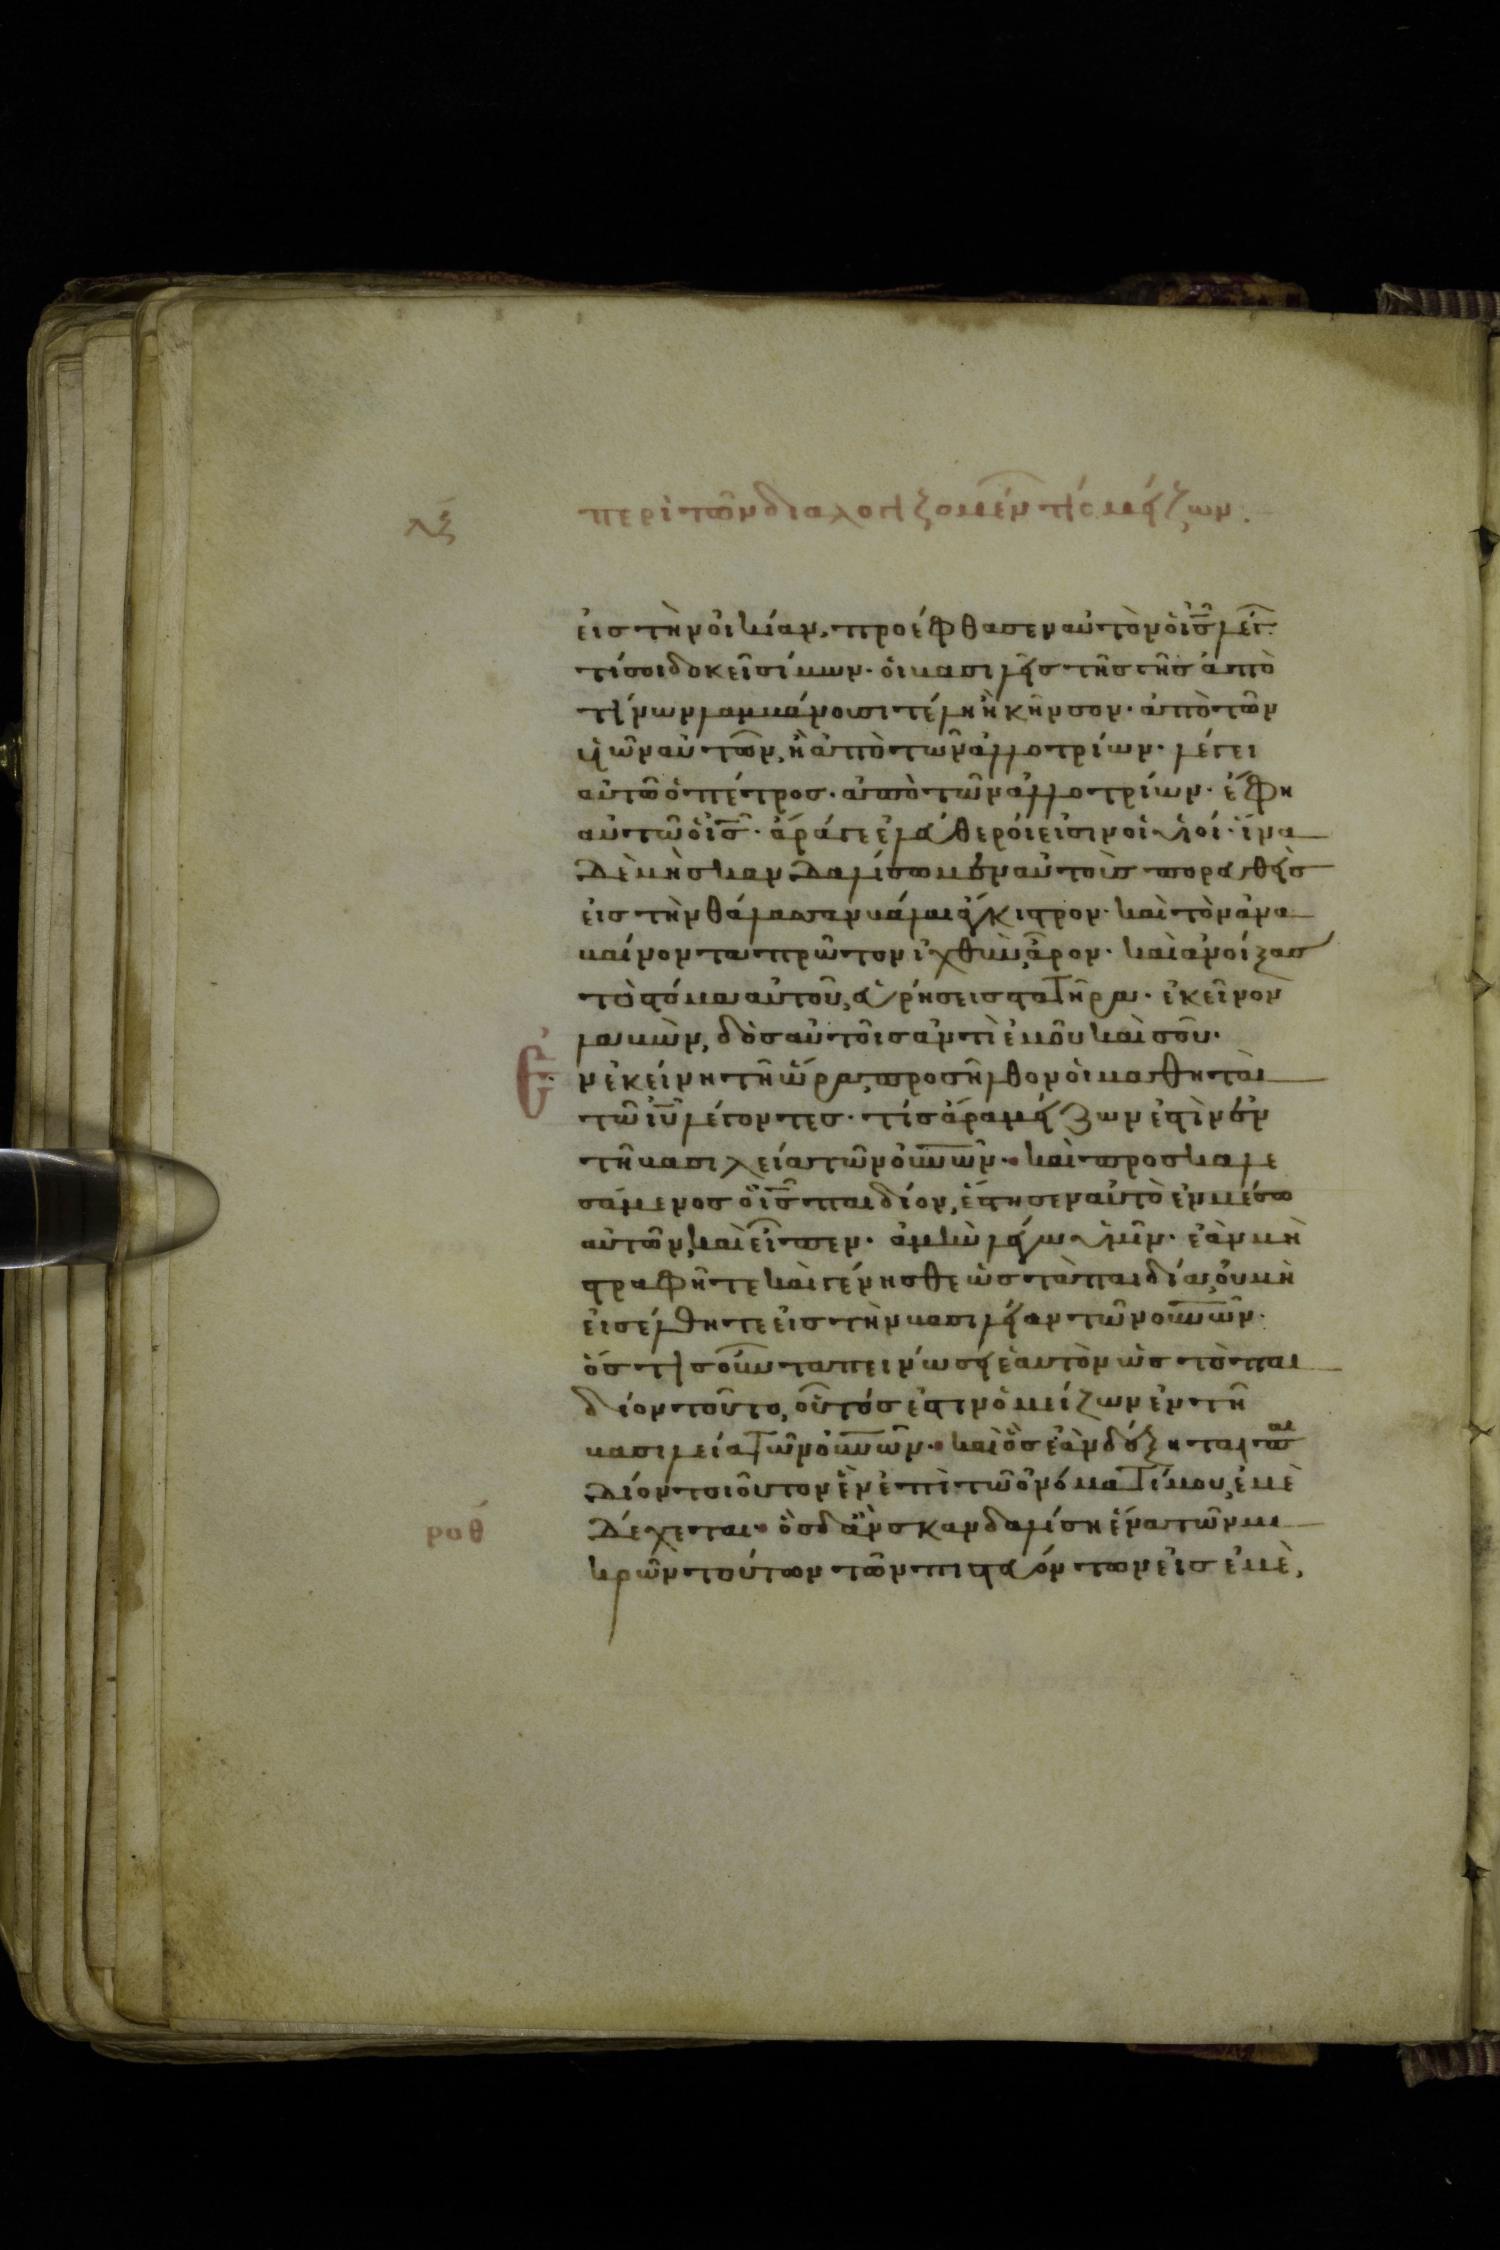 λζ περὶ τῶν διαλογιζομέν τίς μείζων.
εἰς τὴν οἰκίαν, προέφθασεν αὐτὸν ὁ ις λέγ
τί σοι δοκεῖ σίμων· οἱ βασιλεῖς τῆς γῆς ἀπὸ
τίνων λαμβάνουσι τέλη ἢ κῆνσον· ἀπὸ τῶν
υἱῶν αὐτῶν, ἢ ἀπὸ τῶν ἀλλοτρίων· λέγει
αὐτῶ ὁ πέτρος· ἀπὸ τῶν ἀλλοτρίων· ἔφη
αὐτῶ ὁ ις· ἄρά γε ἐλεύθεροί εἰσιν οἱ υἱοί· ἵνα
δὲ μὴ σκανδαλίσωμεν αὐτοὺς πορευθεὶς
εἰς τὴν θάλασσαν βάλαι ἄγκιστρον· καὶ τὸν ἀνα
βαίνοντα πρῶτον ἰχθὺν, ἆρον· καὶ ἀνοίξας
τὸ στόμα αὐτοῦ, εὑρήσεις στατῆρα· ἐκεῖνον
λαβὼν, δὸς αὐτοῖς ἀντὶ ἐμοῦ καὶ σοῦ·
Ἐν ἐκείνη τῆ ὥρα, προσῆλθον οἱ μαθηταὶ
τῶ ιυ λέγοντες· τίς ἄρα μείζων ἐστὶν ἐν
τῆ βασιλεία τῶν οὐνων· καὶ προσκαλε
σάμενος ὁ ις παιδίον, ἔστησεν αὐτὸ ἐν μέσω
αὐτῶν, καὶ εἶπεν· ἀμὴν λέγω ὑμῖν· ἐὰν μὴ
στραφῆτε καὶ γένησθε ὡς τὰ παιδία, οὐ μὴ
εἰσέλθητε εἰς τὴν βασιλείαν τῶν οὐνων·
ὅστις οὖν ταπεινώσει ἑαυτὸν ὡς τὸ παι
δίον τοῦτο, οὗτός ἐστιν ὁ μείζων ἐν τῆ
βασιλεία τῶν οὐνων· καὶ ὃς ἐὰν δέξηται παι
δίον τοιοῦτον ἓν ἐπὶ τῶ ὀνόματί μου, ἐμὲ
ροθ δέχεται· ὃς δ' ἂν σκανδαλίση ἕνα τῶν μι
κρῶν τούτων τῶν πιστευόντων εἰς ἐμὲ,